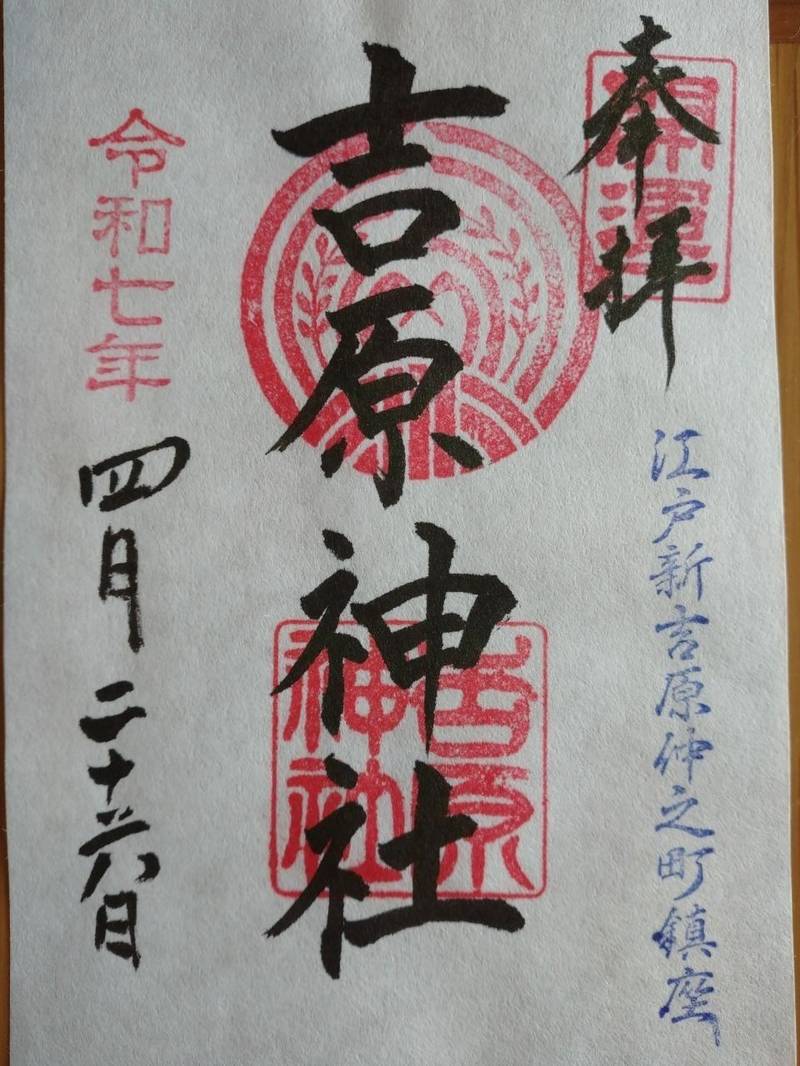 奉拝
開運
江戸新吉原仲之町鎮座
吉原神社
吉原神社
令和七年
四月二十六日